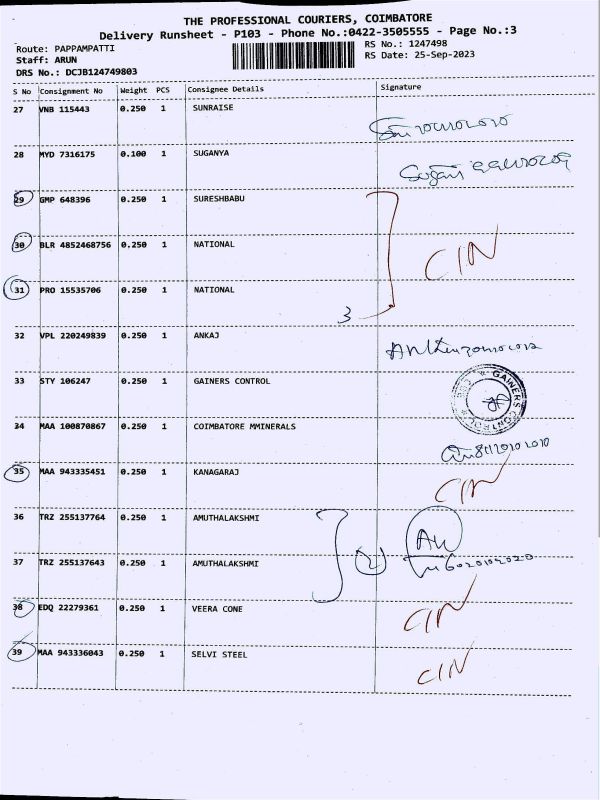 THE PROFESSIONAL COURIERS, COIMBATORE
Delivery Runsheet - P103 - Phone No.:0422-3505555 - Page No.:3
Route: PAPPAMPATTI
RS No.: 1247498
Staff: ARUN
RS Date: 25-Sep-2023
DRS No.: DCJB124749803
S No Consignment No Weight PCS Consignee Details Signature
27 VNB 115443 0.250 1 SUNRAISE
28 MYD 7316175 0.100 1 SUGANYA
29 GMP 648396 0.250 1 SURESHBABU
30 BLR 4852468756 0.250 1 NATIONAL CIN
31 PRO 15535706 0.250 1 NATIONAL
3
32 VPL 220249839 0.250 1 ANKAJ
33 STY 106247 0.250 1 GAINERS CONTROL GAINERS CONTROL
34 MAA 100870867 0.250 1 COIMBATORE MMINERALS
35 MAA 943335451 0.250 1 KANAGARAJ CIN
36 TRZ 255137764 0.250 1 AMUTHALAKSHMI
2
37 TRZ 255137643 0.250 1 AMUTHALAKSHMI
38 EDQ 22279361 0.250 1 VEERA CONE CIN
39 MAA 943336043 0.250 1 SELVI STEEL CIN